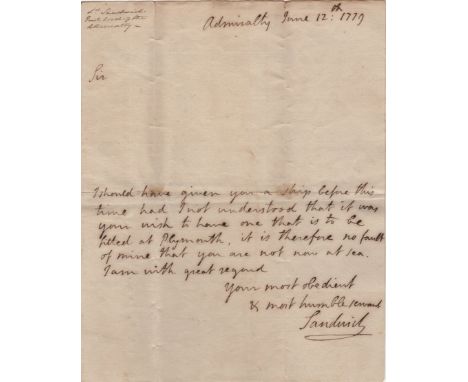 Ld. Sandwich
First Lord of the
Admiralty –
Admiralty June 12:th 1779
Sir
I should have given you a ship before this
time had I not understood that it was
your wish to have one that is to be
fitted at Plymouth, it is therefore no fault
of mine that you are not now at sea.
I am with great regard
Your most obedient
& most humble servant
Sandwich